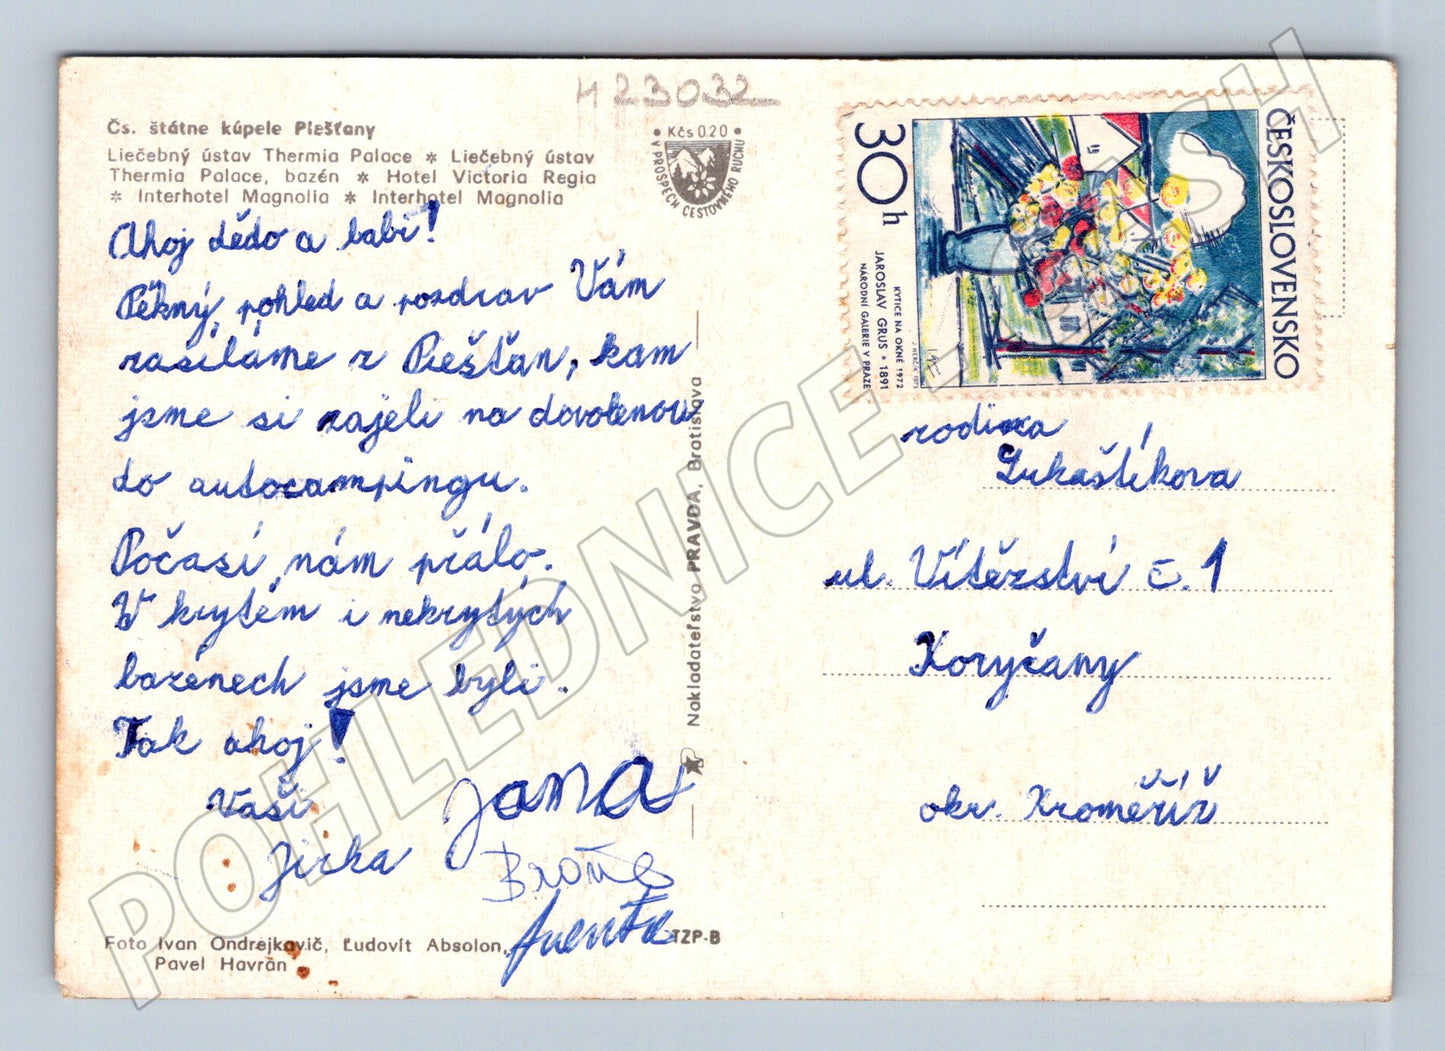 H 23032
Čs. štátne kúpele Piešťany
Liečebný ústav Thermia Palace * Liečebný ústav
Thermia Palace, bazén * Hotel Victoria Regia
* Interhotel Magnolia * Interhotel Magnolia
• Kčs 0,20 •
V PROSPECH CESTOVNÉHO RUCHU
ČESKOSLOVENSKO
30h
KYTICE NA OKNĚ 1972
JAROSLAV GRUS * 1891
NÁRODNÍ GALERIE V PRAZE
J. HERČÍK 1973
Ahoj dědo a babi!
Pěkný pohled a pozdrav Vám
zasíláme z Piešťan, kam
jsme si zajeli na dovolenou
do autocampingu.
Počasí nám přálo.
V krytém i nekrytých
bazénech jsme byli.
Tak ahoj!
Vaši
Jirka
Jana
Nakladateľstvo PRAVDA, Bratislava
rodina
Lukaštíkova
ul. Vítězství č. 1
Koryčany
okr. Kroměříž
Foto Ivan Ondrejkovič, Ľudovít Absolon,
Pavel Havrán
TZP-B
POHLEDNICE - CASH